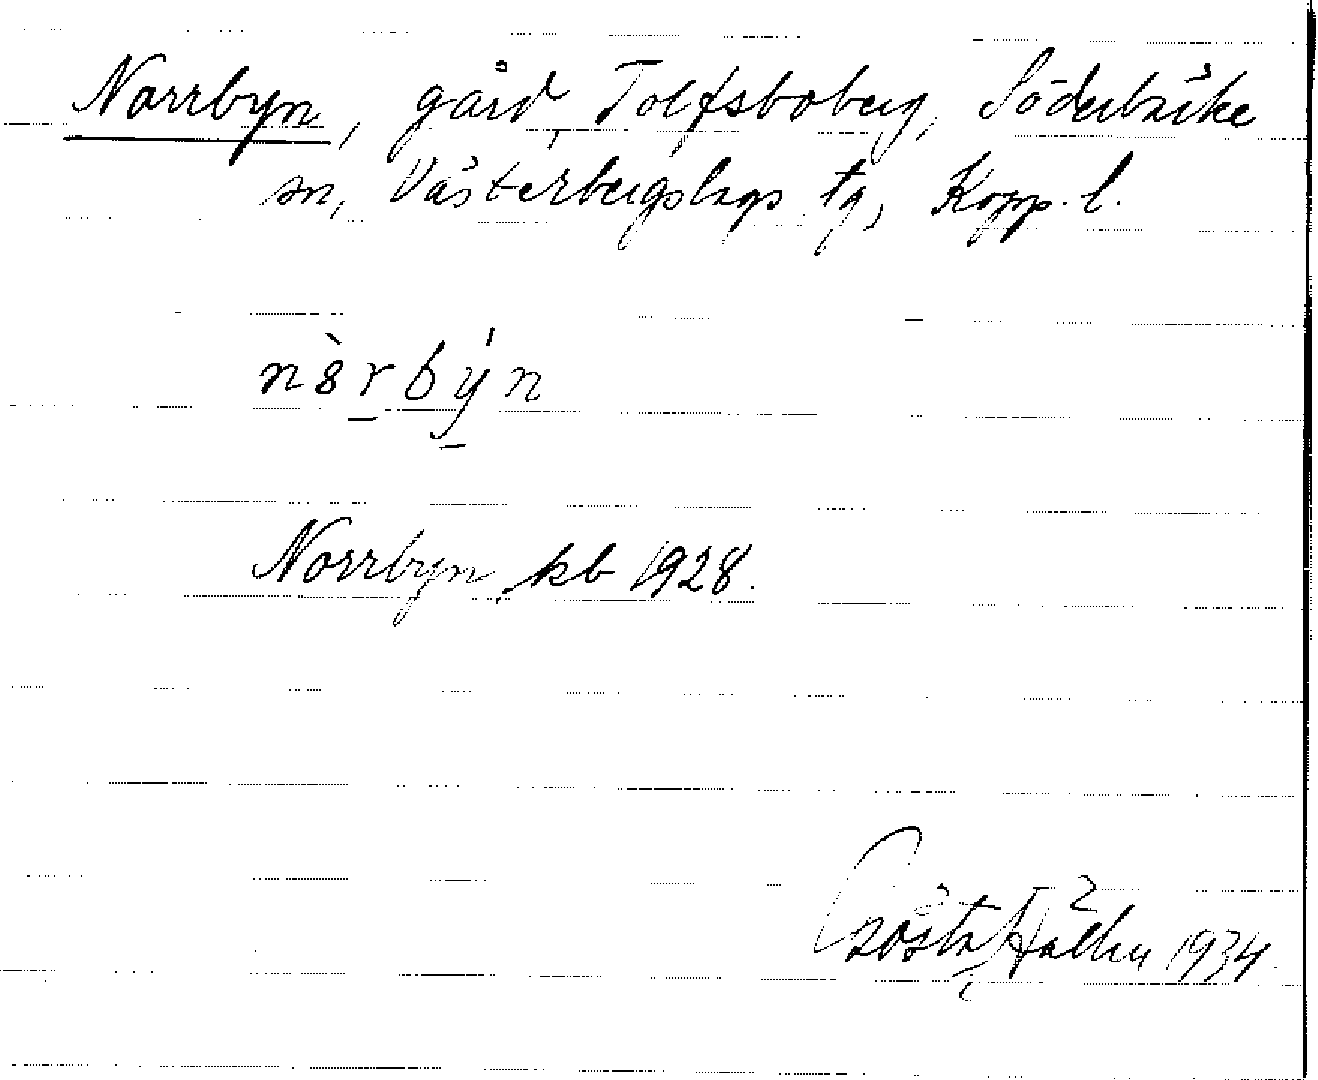 Norrbyn, gård, Tolfsboberg, Söderbärke
sn, Västerbergslags tg, Kopp. l.
Norrbyn kb 1928.
Gösta 1934.